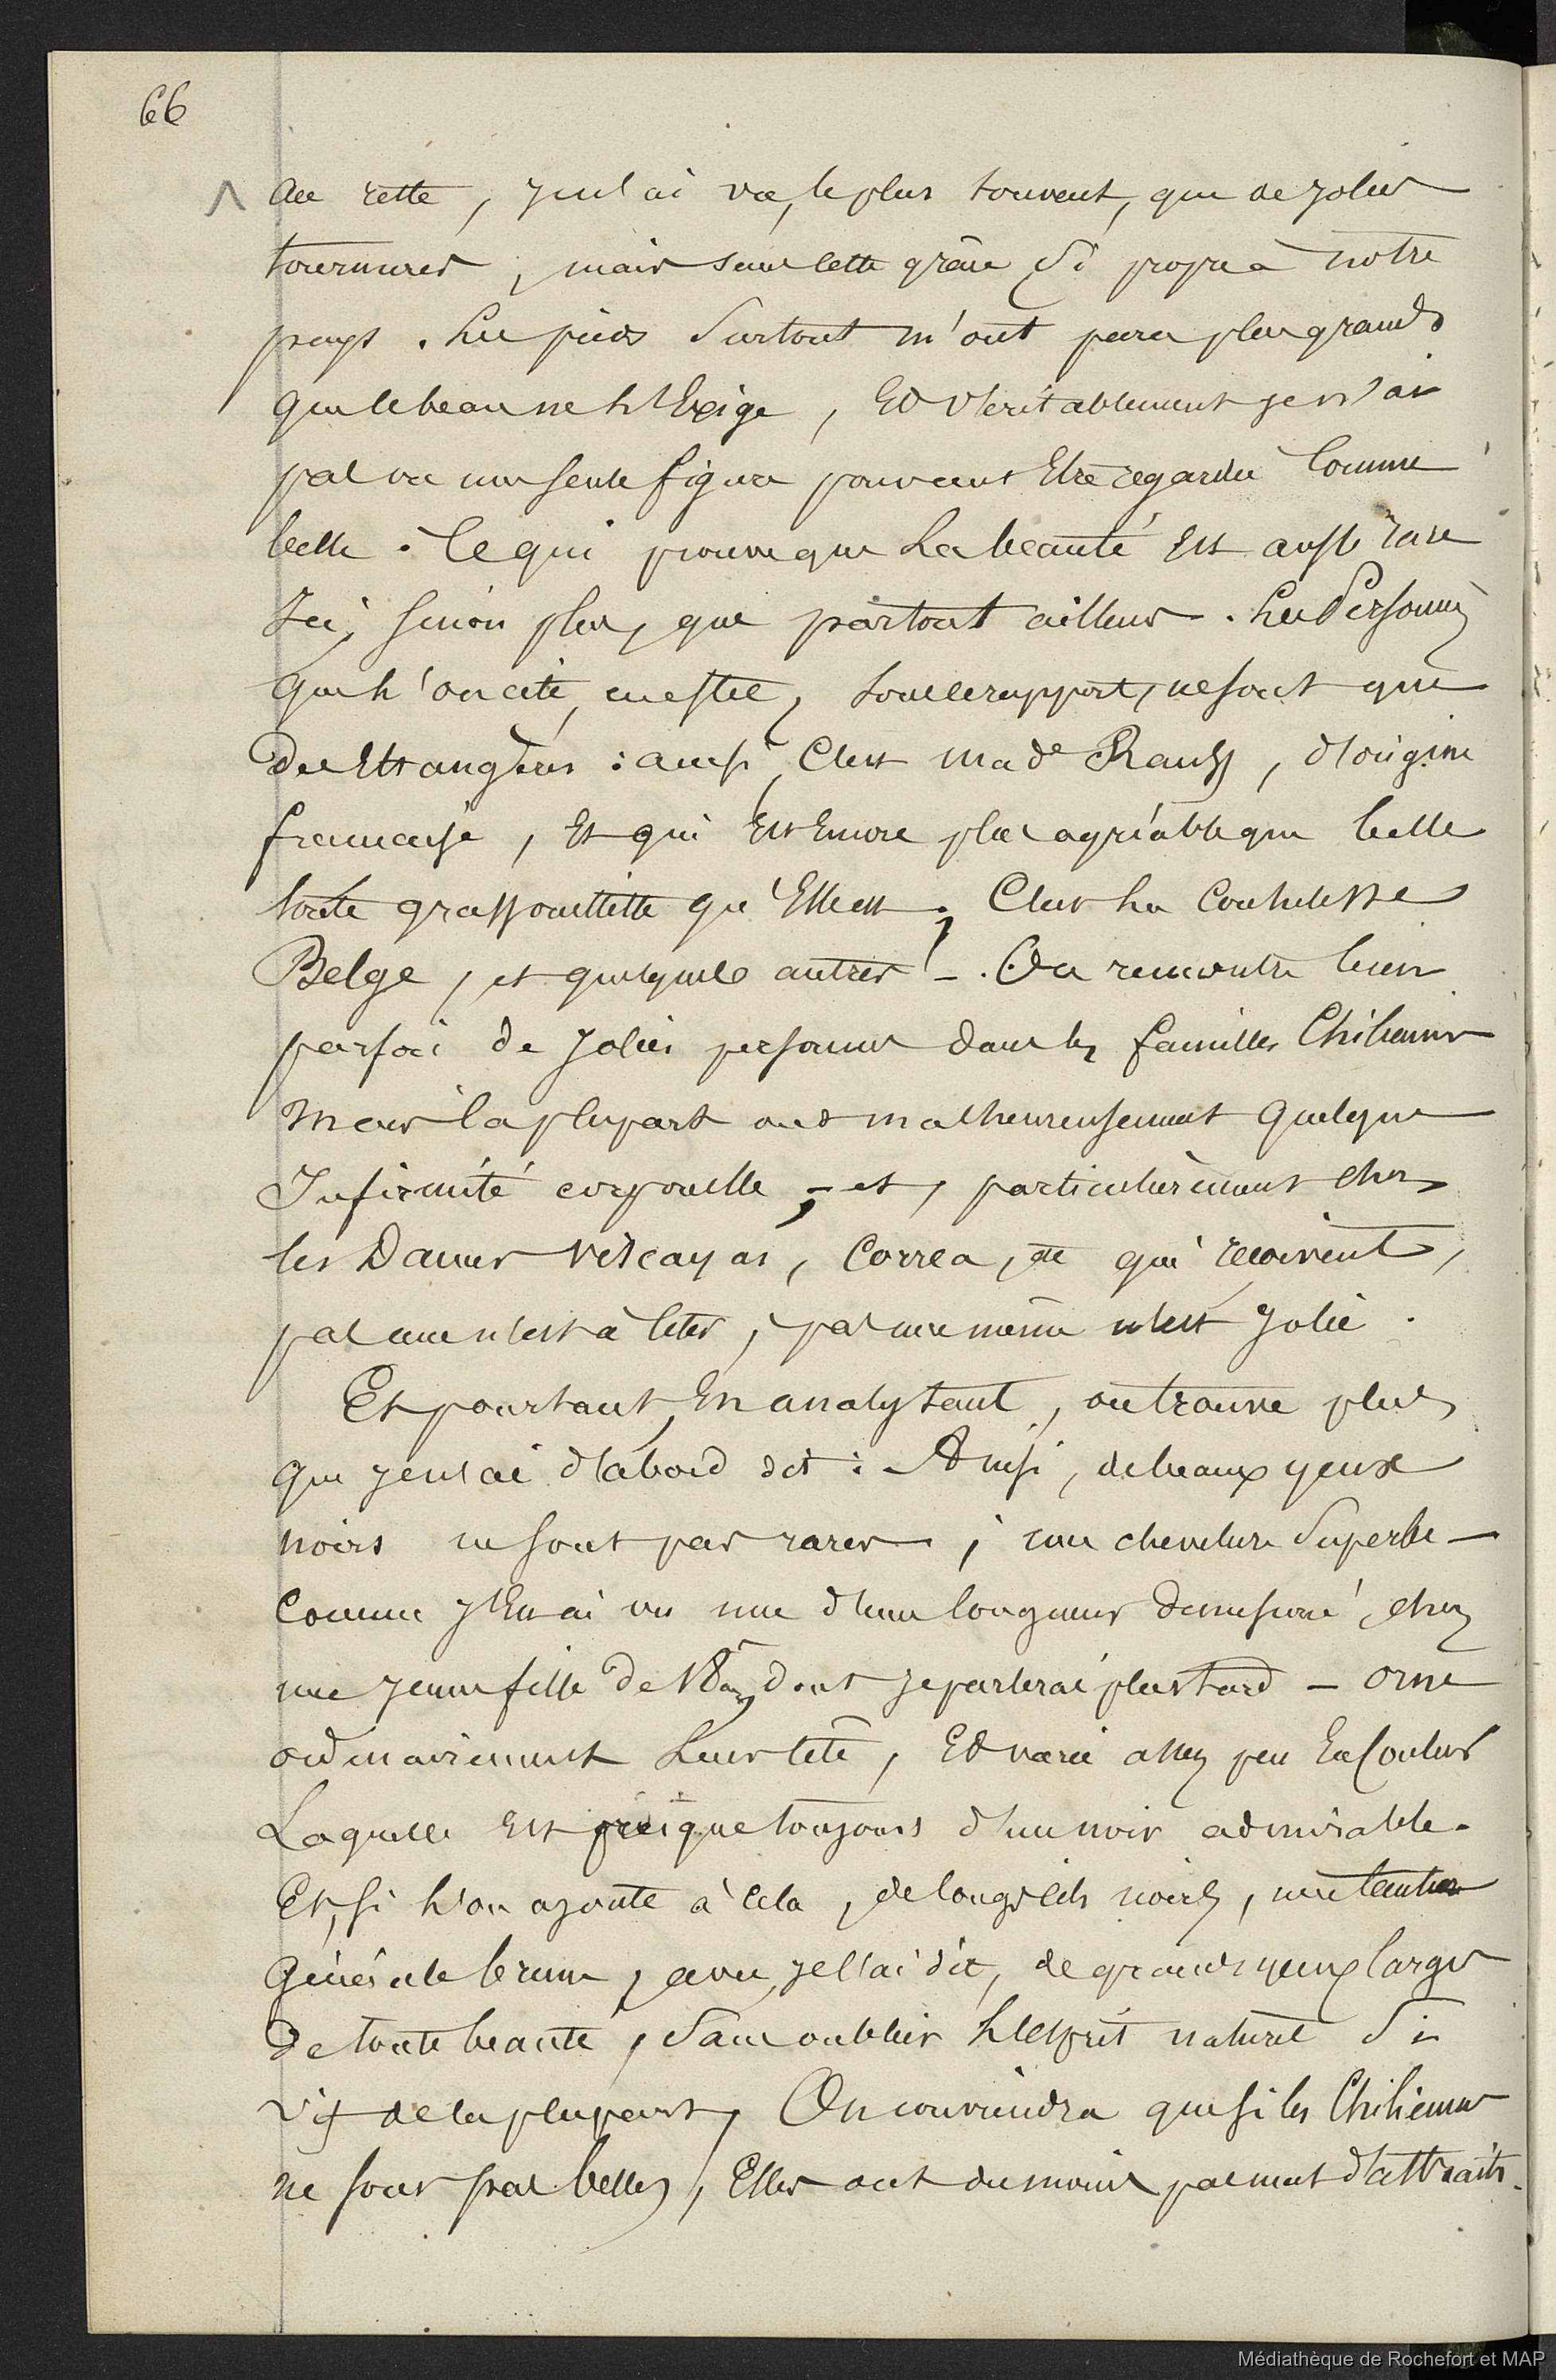 66
Au reste, je n'ai vu, le plus souvent, que de jolies
tournures, mais sans cette grâce si propre à notre
pays. Les pieds surtout m'ont paru plus grands
que le beau ne l'Exige, Et véritablement je n'ai
pas vu une seule figure pouvant Etre regardée Comme
belle. Ce qui prouve que La beauté Est aussi rare
Ici, sinon plus, que partout ailleurs. Les Personnes
que l'on cite, en effet, sous le rapport, ne sont que
des Etrangères : aussi, C'est Made , d'origine
française, Et qui Est Encore plus agréable que belle
toute grassouillette qu'Elle est ; C'est La Comtesse
Belge, et quelques autres –. On rencontre bien
parfois de Jolies personnes dans les familles Chiliennes
Mais la plupart ont malheureusement quelque
Infirmité corporelle ; – et, particulièrement chez
les Dames Viscayas, Correa, qui reçoivent,
pas une n'est à citer, pas une même n'est Jolie.
Et pourtant, En analysant, on trouve plus
que je n'ai d'abord dit : Ainsi, de beaux yeux
noirs ne sont pas rares ; une chevelure Superbe –
Comme J'En ai vu une d'une longueur démesurée, chez
une jeune fille de 18 ans, dont je parlerai plus tard – orne
ordinairement Leur tête, Et varie assez peu En Couleur
Laquelle Est presque toujours d'un noir admirable.
Et, si L'on ajoute à Cela, de longs cils noirs, une teinte
générale brune, avec, je l'ai dit, de grands yeux larges
de toute beauté, Sans oublier L'esprit naturel Si
vif de la plupart, On conviendra que si les Chiliennes
ne sont pas belles, Elles ont du moins pas mal d'attraits.
Médiathèque de Rochefort et MAP